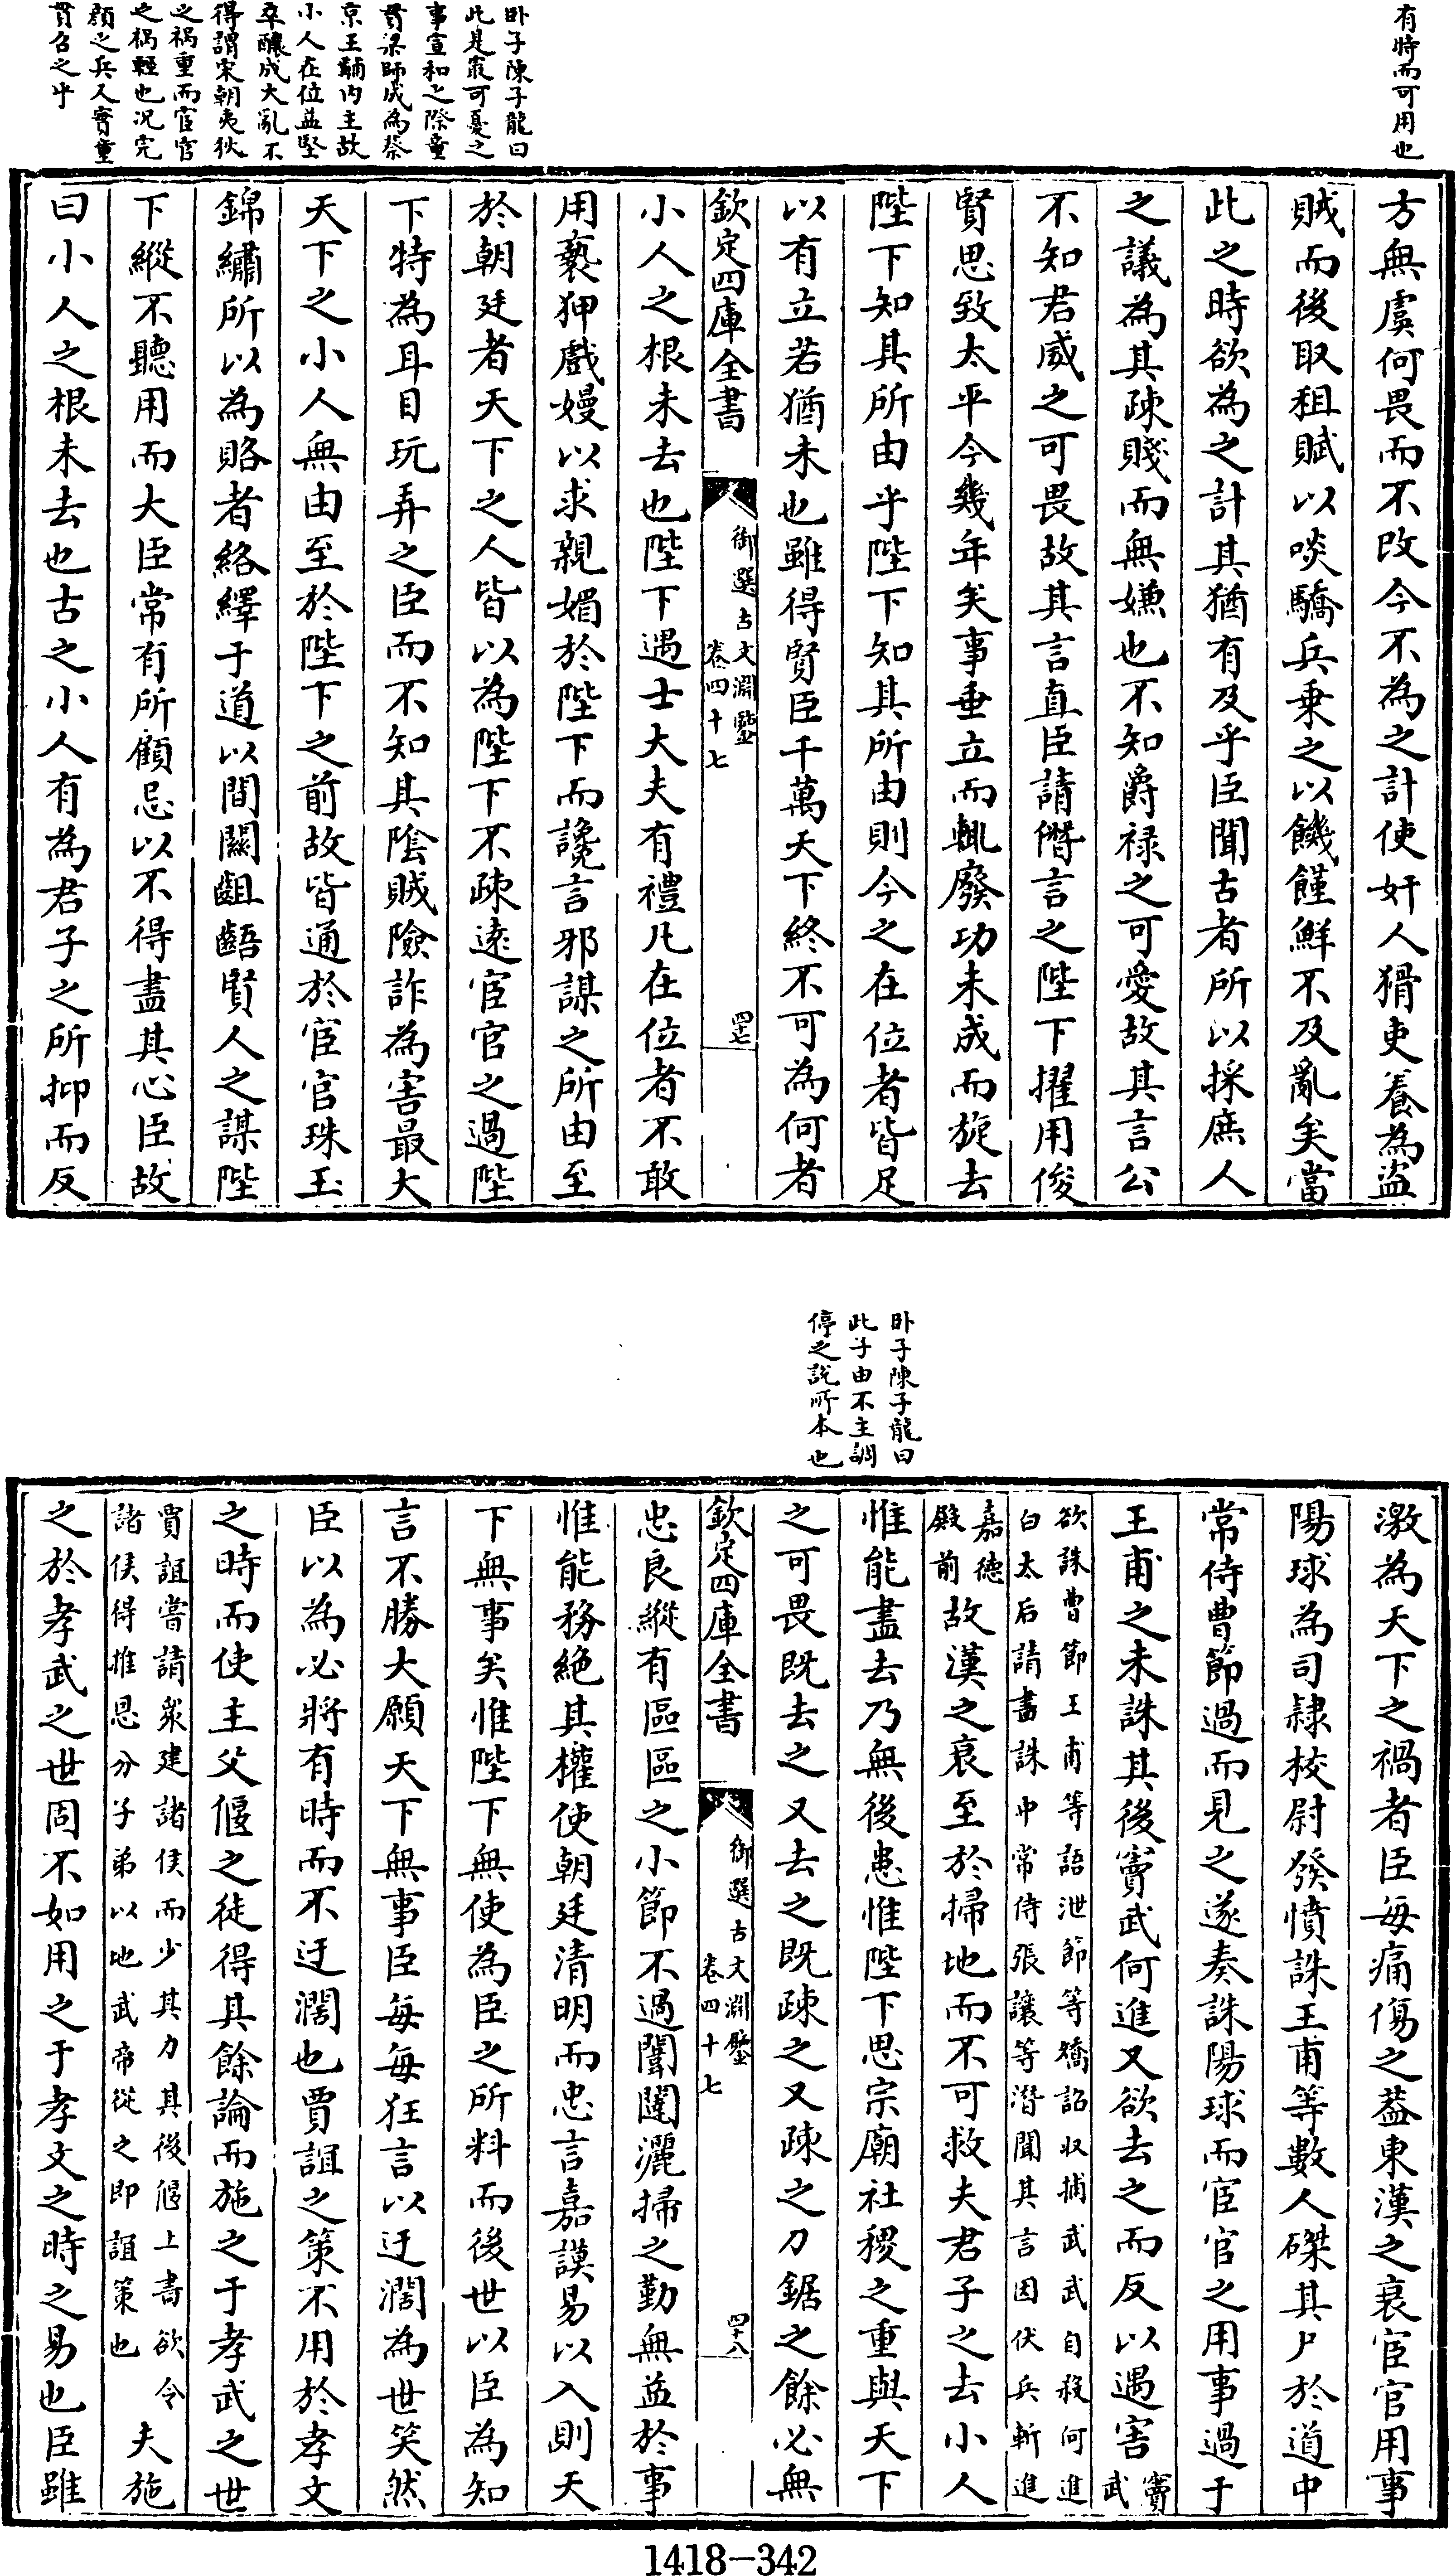 有時而可用也
方無虞何畏而不改今不為之計使奸人猾吏養為盜
賊而後取租賦以啖驕兵乗之以饑饉鮮不及亂矣當
此之時欲為之計其猶有及乎臣聞古者所以採庶人
之議為其疎賤而無嫌也不知爵禄之可愛故其言公
不知君威之可畏故其言直臣請僭言之陛下擢用俊
賢思致太平今幾年矣事垂立而輒廢功未成而旋去
陛下知其所由乎陛下知其所由則今之在位者皆足
以有立若猶未也雖得賢臣千萬天下終不可為何者
欽定四庫全書
御選古文淵鑒
卷四十七
四十七
小人之根未去也陛下遇士大夫有禮凡在位者不敢
用褻狎戲嫚以求親媚於陛下而讒言邪謀之所由至
於朝廷者天下之人皆以為陛下不疎逺宦官之過陛
下特為耳目玩弄之臣而不知其隂賊險詐為害最大
天下之小人無由至於陛下之前故皆通於宦官珠玉
錦繡所以為賂者絡繹于道以間闗齟齬賢人之謀陛
下縱不聽用而大臣常有所顧忌以不得盡其心臣故
曰小人之根未去也古之小人有為君子之所抑而反
卧子陳子龍曰
此是最可憂之
事宣和之際童
貫梁師成為蔡
京王黼内主故
小人在位益堅
卒釀成大亂不
得謂宋朝夷狄
之禍重而宦官
之禍輕也况完
顔之兵又實童
貫召之乎
激為天下之禍者臣每痛傷之葢東漢之衰宦官用事
陽球為司隷校尉發憤誅王甫等數人磔其尸於道中
常侍曹節過而見之遂奏誅陽球而宦官之用事過于
王甫之未誅其後竇武何進又欲去之而反以遇害竇武
欲誅曹節王甫等語泄節等矯詔収捕武武自殺何進
白太后請盡誅中常侍張讓等潛聞其言因伏兵斬進
嘉德
殿前故漢之衰至於掃地而不可救夫君子之去小人
惟能盡去乃無後患惟陛下思宗廟社稷之重與天下
之可畏既去之又去之既疎之又疎之刀鋸之餘必無
卧子陳子龍曰
此子由不主調
停之說所本也
欽定四庫全書
御選古文淵鑒
卷四十七
四十八
忠良縱有區區之小節不過闈闥灑掃之勤無益於事
惟能務絶其權使朝廷清明而忠言嘉謨易以入則天
下無事矣惟陛下無使為臣之所料而後世以臣為知
言不勝大願天下無事臣每每狂言以迂濶為世笑然
臣以為必將有時而不迂濶也賈誼之策不用於孝文
之時而使主父偃之徒得其餘論而施之于孝武之世
賈誼嘗請衆建諸侯而少其力其後偃上書欲令
諸侯得推恩分子弟以地武帝從之即誼策也
夫施
之於孝武之世固不如用之于孝文之時之易也臣雖
1418-342